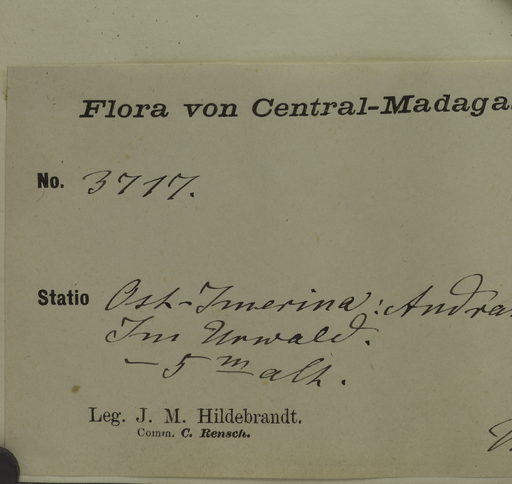 Flora von Central-Madaga
No. 3717.
Statio Ost-Imerina: Andra
Im Urwald.
— 5 m alt.
Leg. J. M. Hildebrandt.
Comm. C. Rensch.